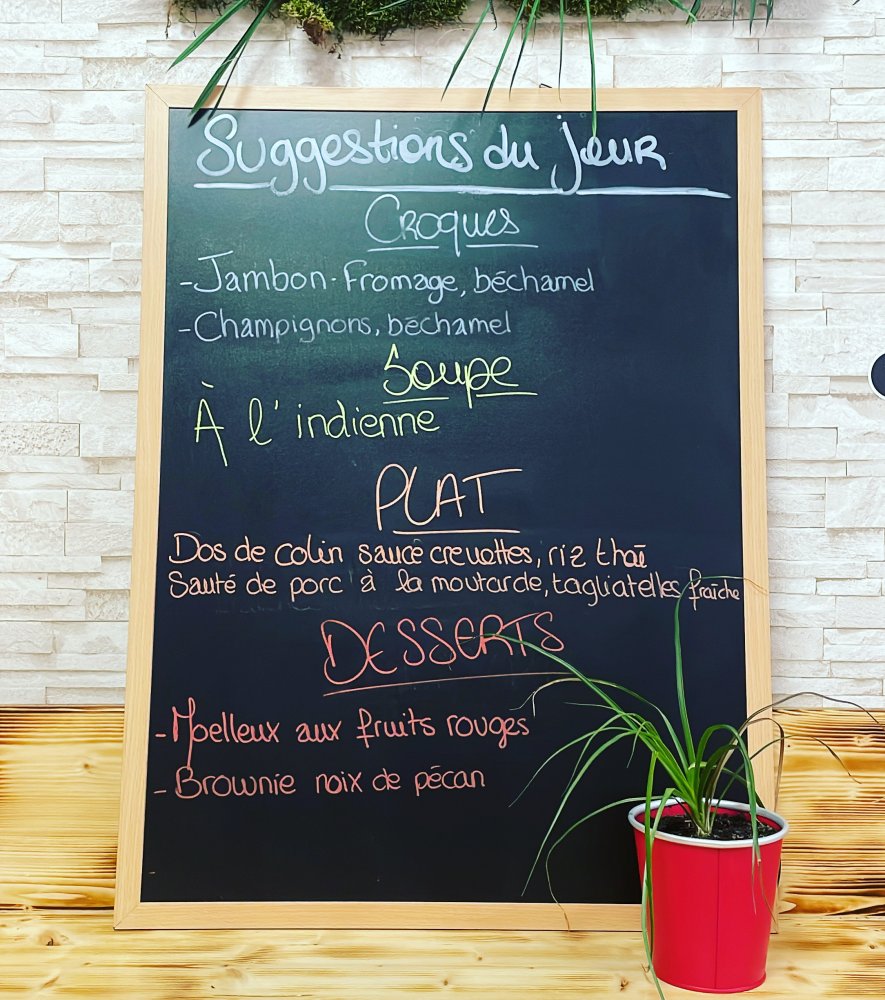 Suggestions du jour
Croques
- Jambon-Fromage, béchamel
- Champignons, béchamel
Soupe
À l'indienne
PLAT
Dos de colin sauce crevettes, riz thaï
Sauté de porc à la moutarde, tagliatelles fraîche
DESSERTS
- Moelleux aux fruits rouges
- Brownie noix de pécan